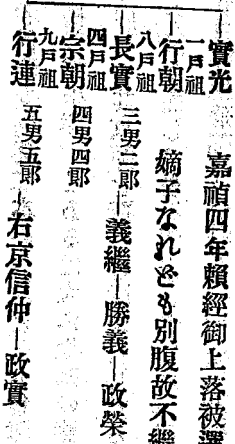 實光 嘉禎四年賴經御上落被選
一戸祖
行朝 嫡子なれども別腹故不繼
八戸祖
長實 三男二郎—義繼—勝義—政榮
四戸祖
宗朝 四男四郎
九戸祖
行連 五男五郎—右京信仲—政實